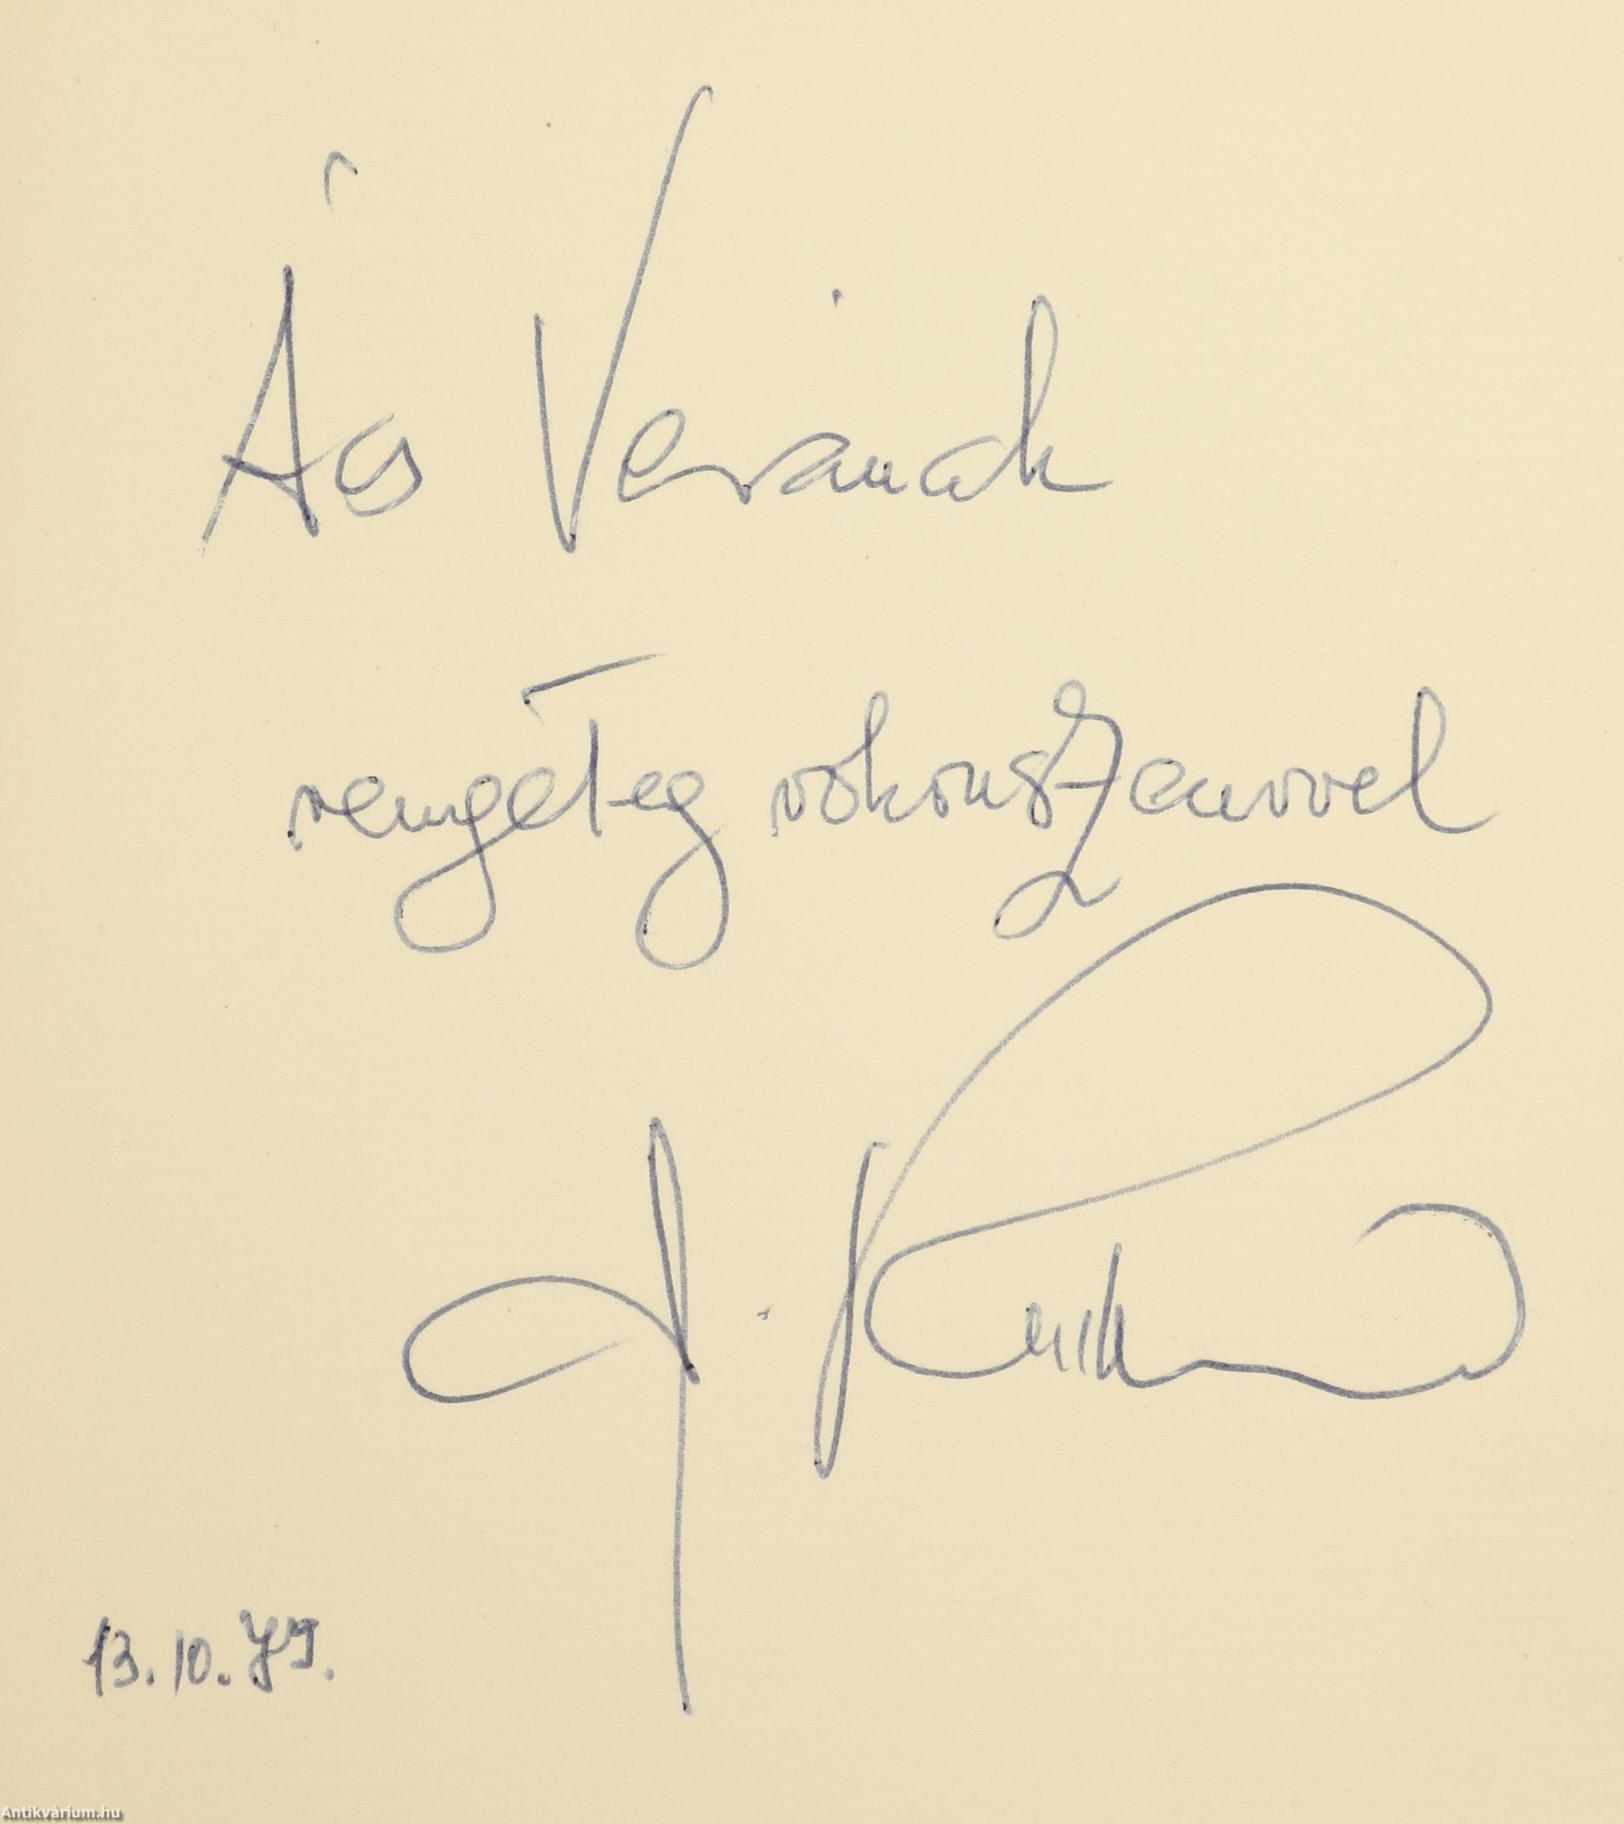 Ács Verának
rengeteg rokonszenvvel
13.10.79.
Antikvárium.hu